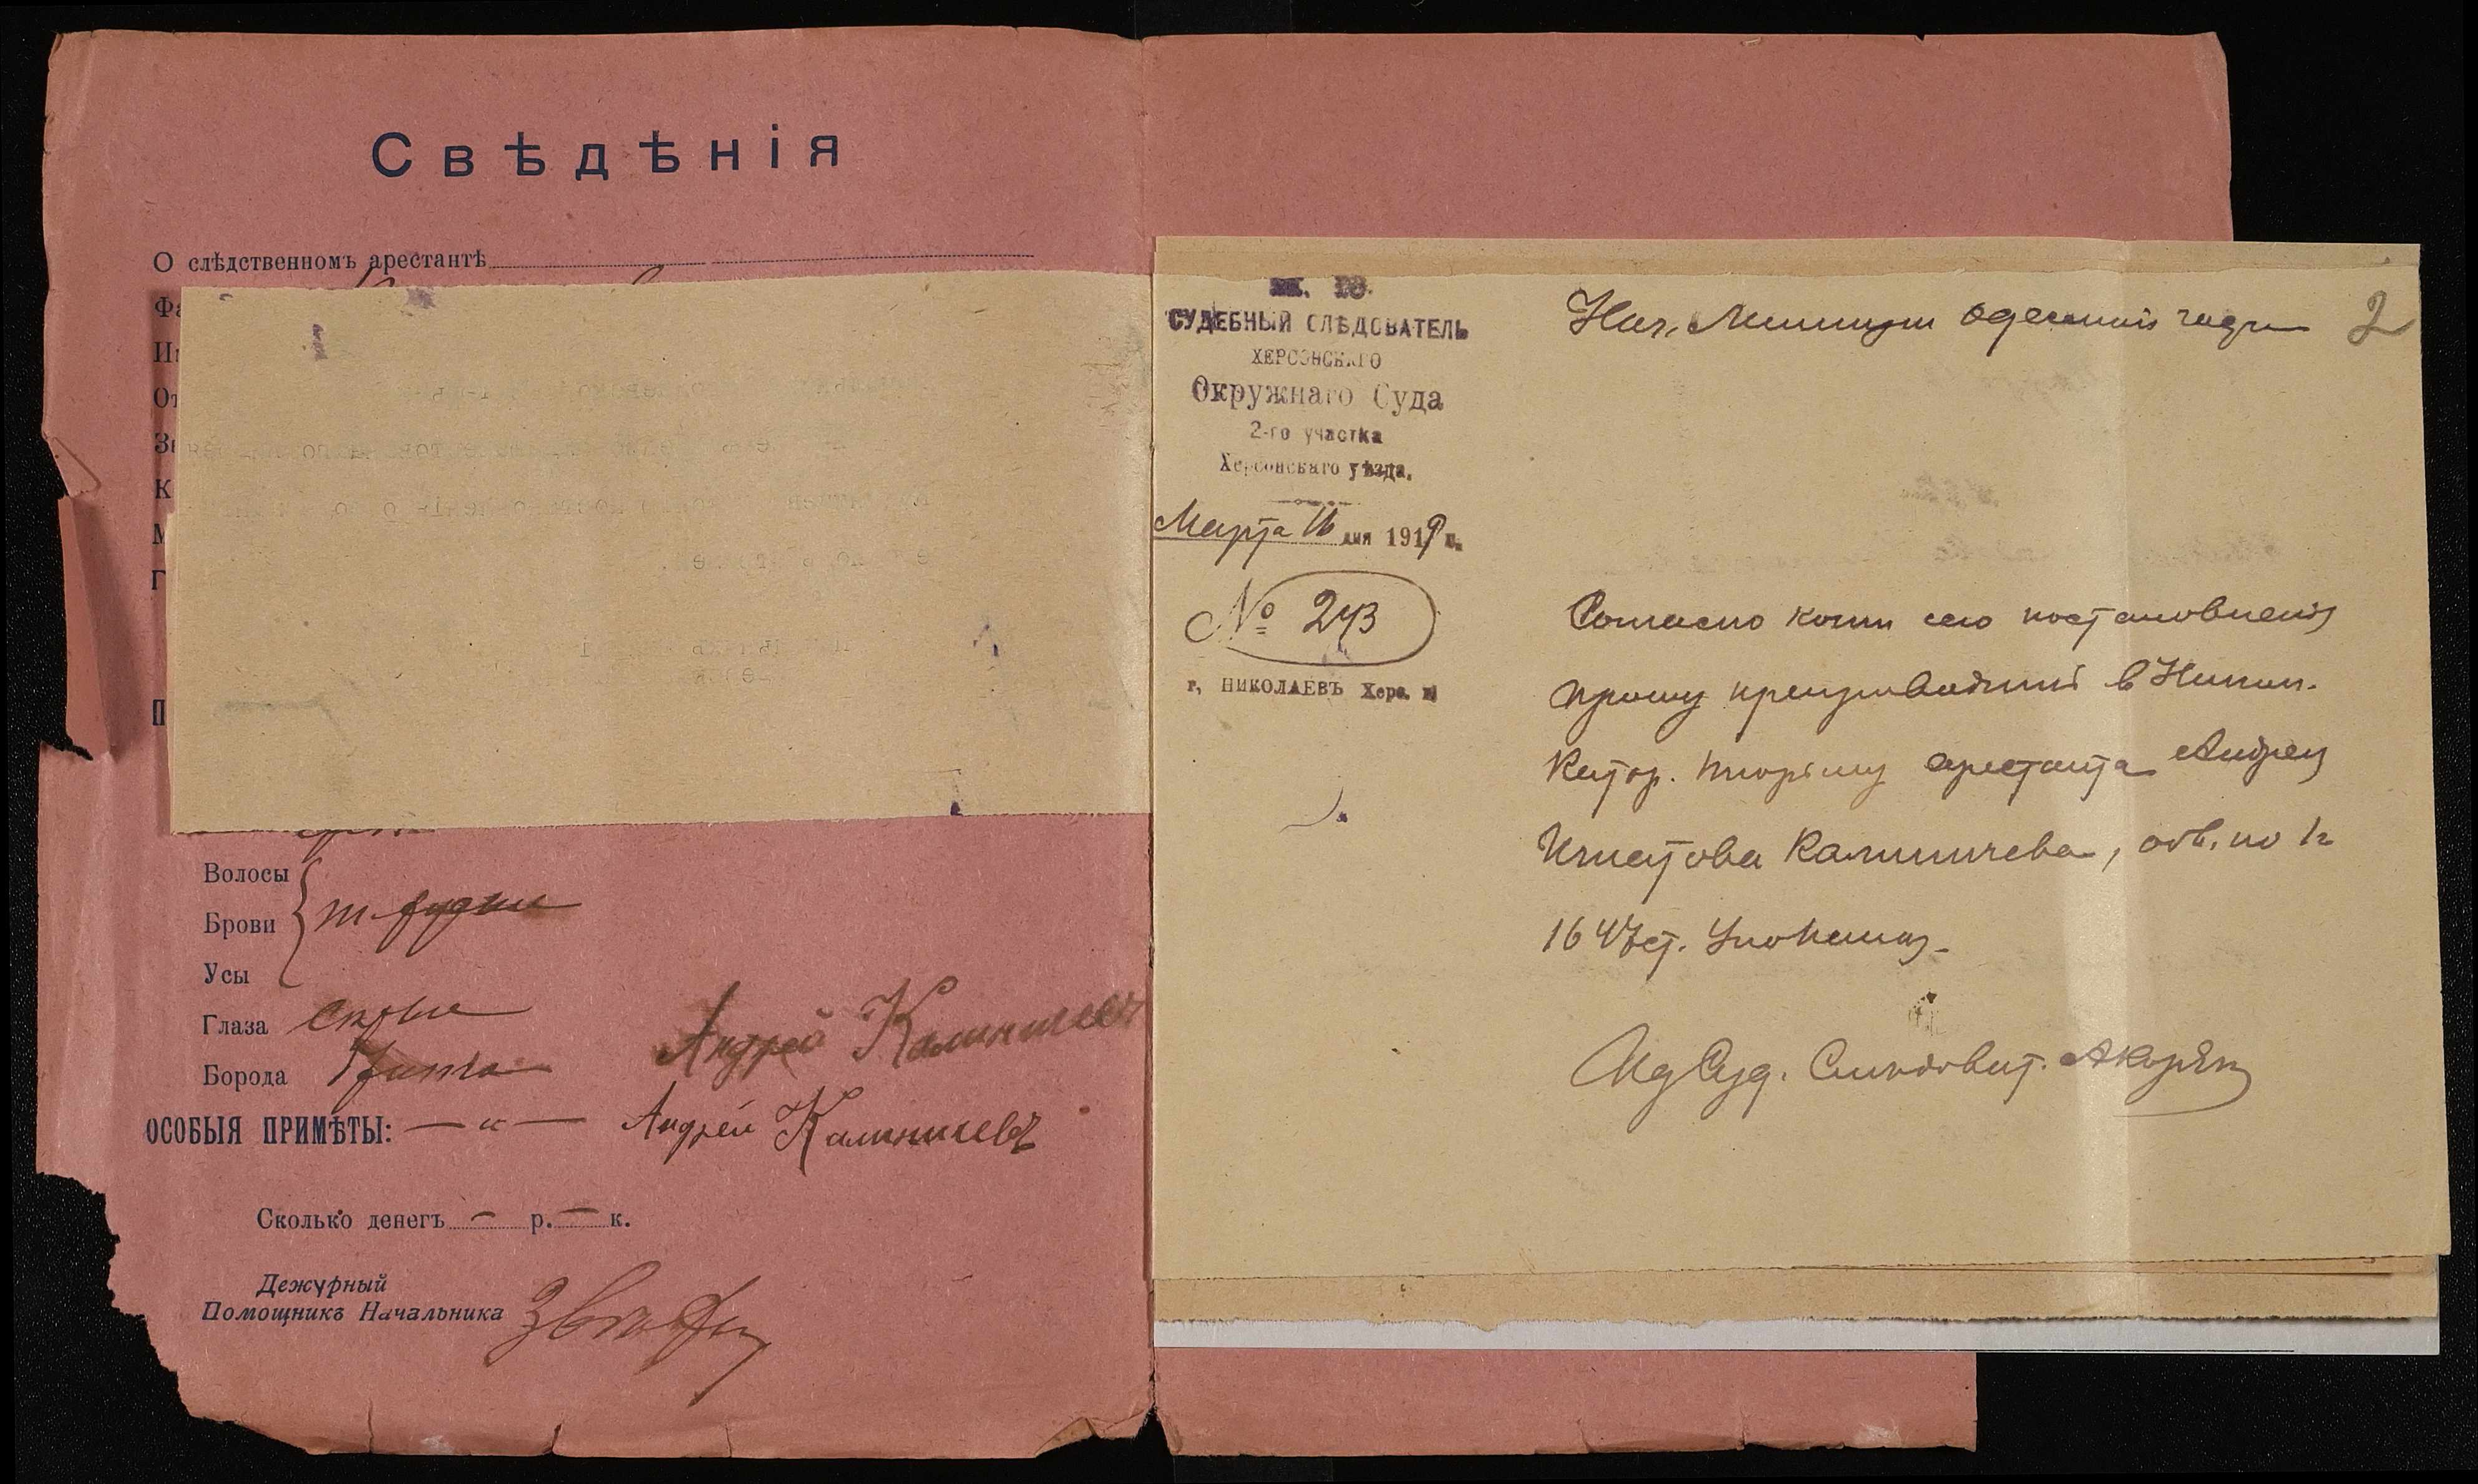 Свѣдѣнія
О слѣдственномъ арестантѣ
Фа
От
К
М
Г
П
Волосы
Брови
Усы
Глаза
Борода
ОСОБЫЯ ПРИМѢТЫ: — „ —
Андрей Калиничев
Андрей Калиничевъ
Сколько денегъ — р. — к.
Дежурный
Помощникъ Начальника
СУДЕБНЫЙ СЛѢДОВАТЕЛЬ
ХЕРСОНСКАГО
Окружнаго Суда
2-го участка
Херсонскаго уѣзда.
Марта 16 дня 1919 г.
№ 243
г. НИКОЛАЕВЪ Херс. г.
Нач. Милиции 2
Согласно копии сего постановления
прошу препроводить в Никол.
Катор. тюрьму арестанта Андрея
Игнатова Калиничева, обв. по 1 ч
1647 ст. Улож. о наказ.
Ид Суд. Следоват.